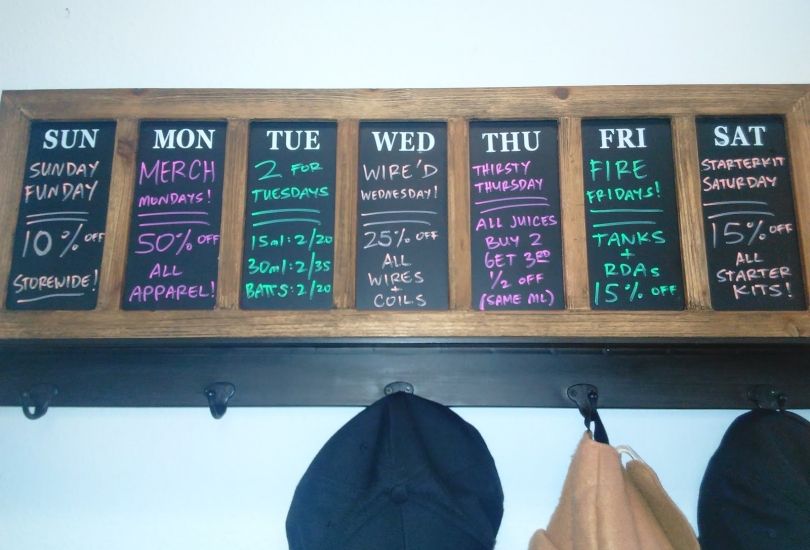 SUN
SUNDAY
FUNDAY
10% OFF
STOREWIDE!
MON
MERCH
MONDAYS!
50% OFF
ALL
APPAREL!
TUE
2 FOR
TUESDAYS
15ml: 2/20
30ml: 2/35
BATTS: 2/20
WED
WIRE'D
WEDNESDAY!
25% OFF
ALL
WIRES
+
COILS
THU
THIRSTY
THURSDAY
ALL JUICES
BUY 2
GET 3RD
1/2 OFF
(SAME ML)
FRI
FIRE
FRIDAYS!
TANKS
+
RDAs
15% OFF
SAT
STARTERKIT
SATURDAY
15% OFF
ALL
STARTER
KITS!